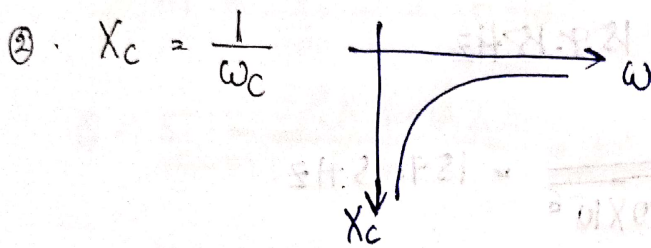 ② . X_C = 1/ω_C
ω
X_C